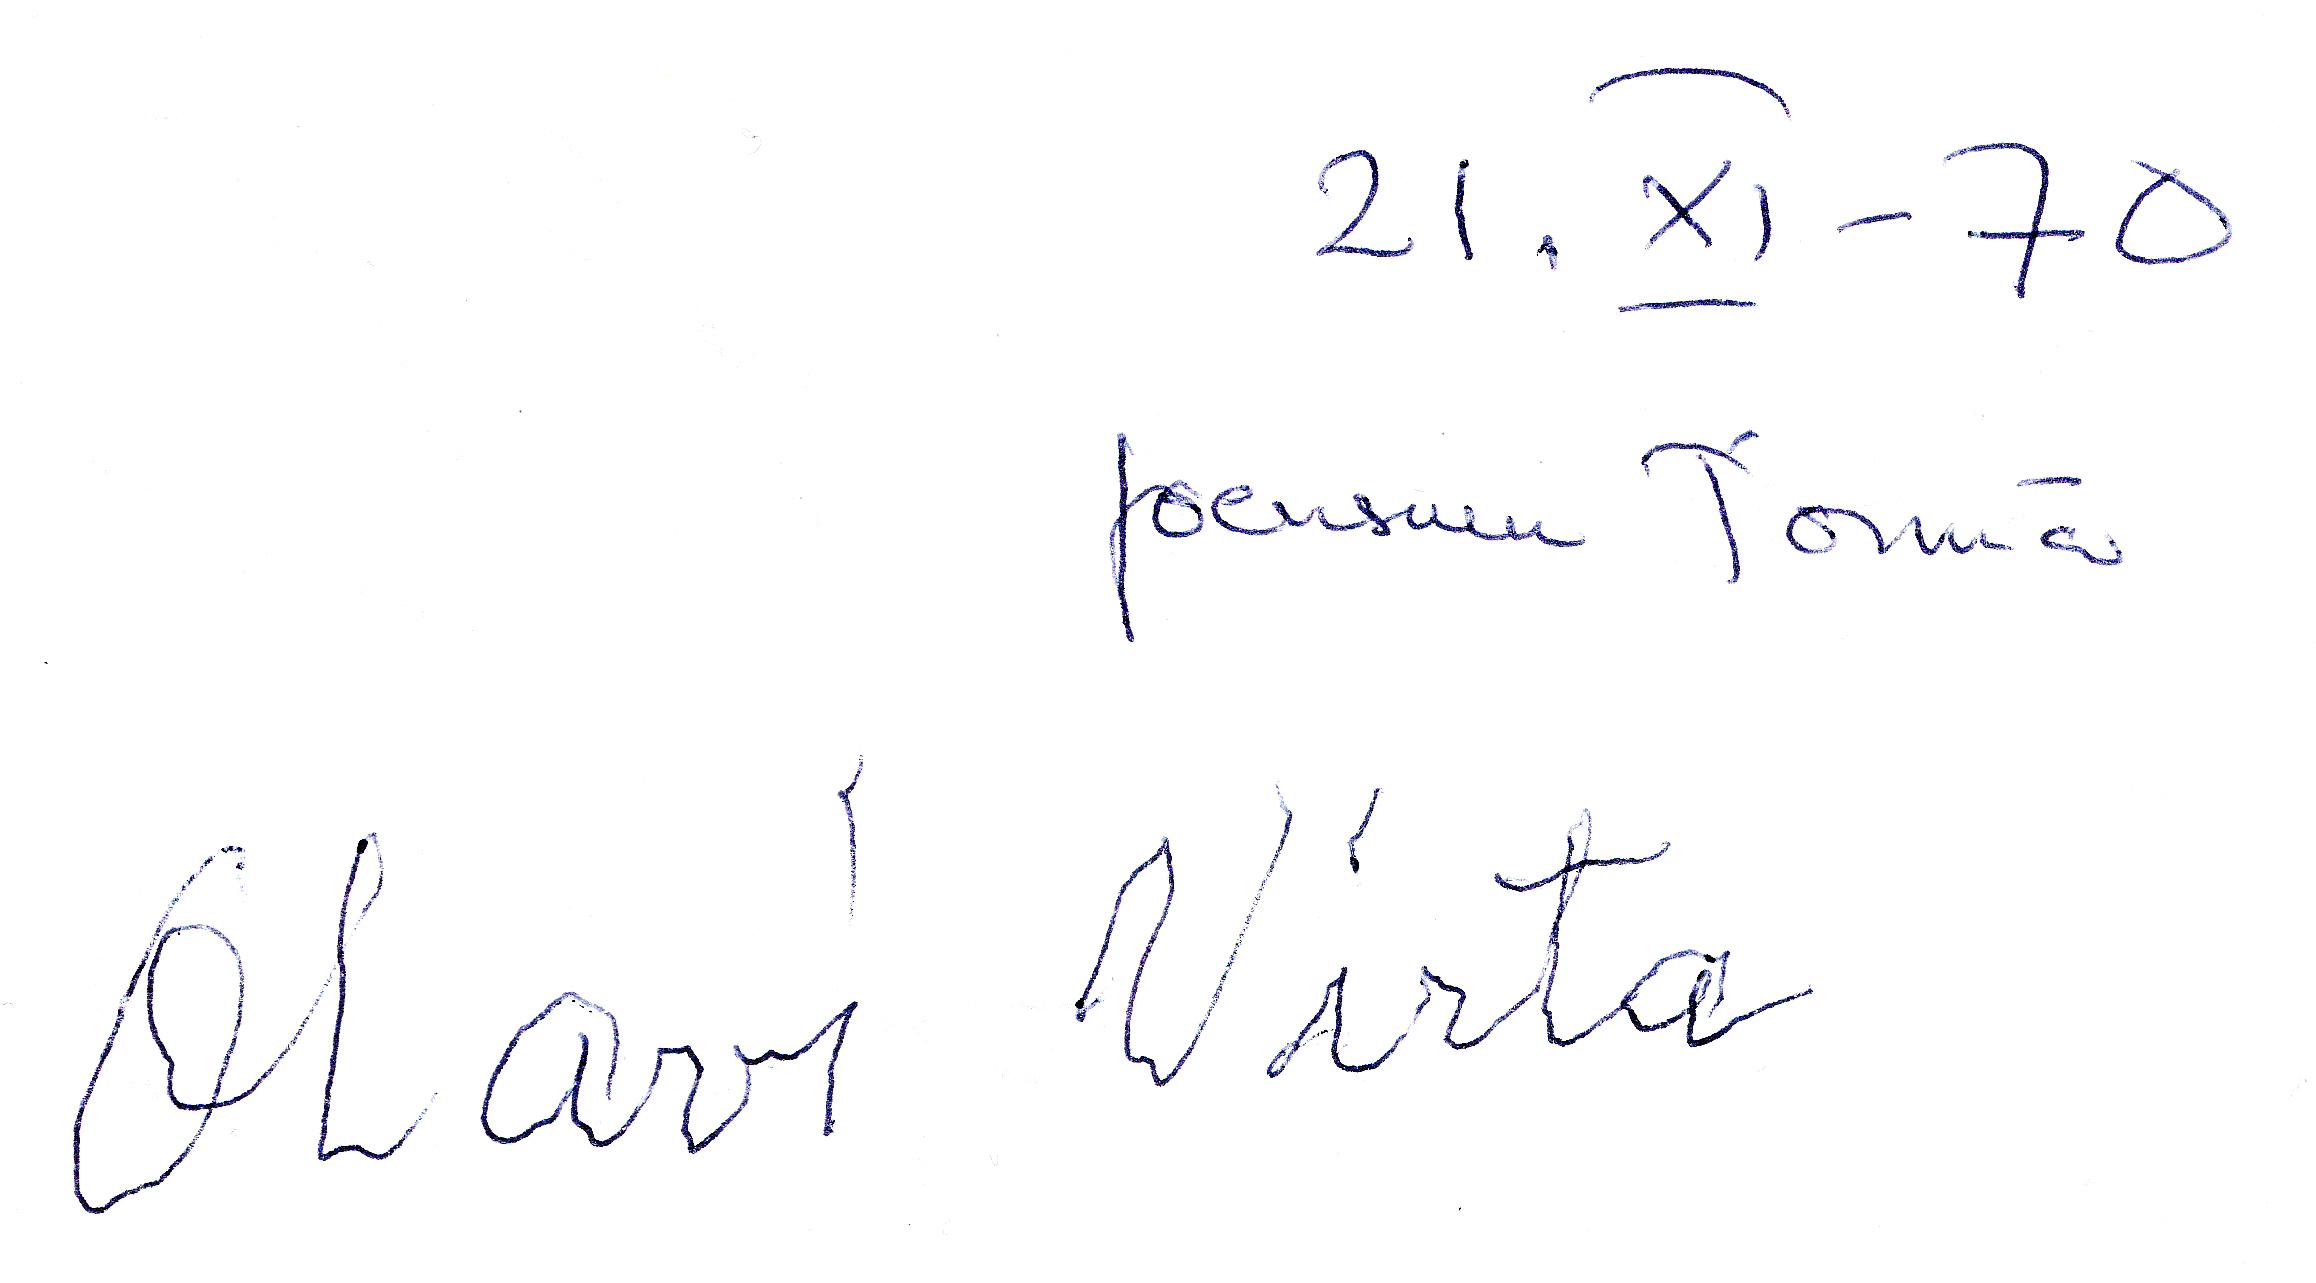 21. XI - 70
Joensuun Tormä
Olavi Virta